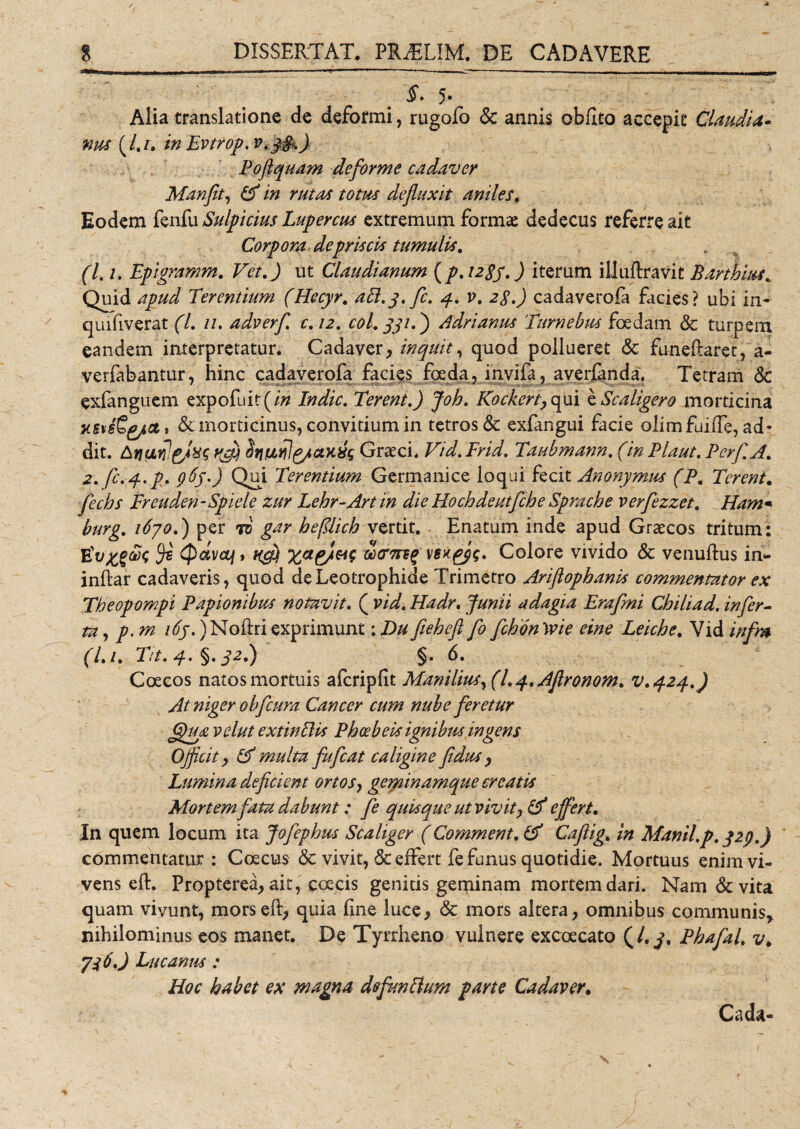 8 DISSERTAT. PRÆLIM. DE CADAVERE
§. 5.
Alia translatione de deformi, rugoſo & annis obſito accepit Claudia-
nus (l. 1. in Evtrop. v. 38.)
Poſtquam deforme cadaver
Manſit, & in rutas totus defluxit aniles.
Eodem ſenſu Sulpicius Lupercus extremum formæ dedecus referre ait
Corpora depriscis tumulis.
(l. 1. Epigramm. Vet.) ut Claudianum (p. 1285.) iterum illuſtravit Barthius.
Quid apud Terentium (Hecyr. act. 3. ſc. 4. v. 28.) cadaveroſa facies? ubi in-
quiſiverat (l. 11. adverſ. c. 12. col. 331.) Adrianus Turnebus fœdam & turpem
eandem interpretatur. Cadaver, inquit, quod pollueret & funeſtaret, a-
verſabantur, hinc cadaveroſa facies fœda, inviſa, averſanda. Tetram &
exſanguem expoſuit (in Indic. Terent.) Joh. Kockert, qui è Scaligero morticina
& morticinus, convitium in tetros & exſangui facie olim fuiſſe, ad-
dit. Græci. Vid. Frid. Taubmann. (in Plaut. Perſ. A.
2. ſc. 4. p. 965.) Qui Terentium Germanice loqui fecit Anonymus (P. Terent.
ſechs Freuden-Spiele zur Lehr-Art in die Hochdeutſche Sprache verſezzet. Ham-
burg. 1670.) per τὸ gar heßlich vertit. Enatum inde apud Græcos tritum:
Colore vivido & venuſtus in-
inſtar cadaveris, quod de Leotrophide Trimetro Ariſtophanis commentator ex
Theopompi Papionibus notavit. (vid. Hadr. Junii adagia Eraſmi Chiliad. inſer-
ta, p. m 165.) Noſtri exprimunt: Du ſieheſt ſo ſchön wie eine Leiche. Vid infra
(l. 1. Tit. 4. §. 32.) §. 6.
Cœcos natos mortuis aſcripſit Manilius, (l. 4. Aſtronom. v. 424.)
At niger obſcura Cancer cum nube feretur
Quæ velut extinctis Phœbeis ignibus ingens
Officit, & multa fuſcat caligine ſidus,
Lumina deficient ortos, geminamque creatis
Mortem fata dabunt: ſe quisque ut vivit, & effert.
In quem locum ita Joſephus Scaliger (Comment. & Caſtig. in Manil. p. 329.)
commentatur: Cœcus & vivit, & effert ſe funus quotidie. Mortuus enim vi-
vens eſt. Propterea, ait, cœcis genitis geminam mortem dari. Nam & vita
quam vivunt, mors eſt, quia ſine luce, & mors altera, omnibus communis,
nihilominus eos manet. De Tyrrheno vulnere excœcato (l. 3. Phaſal. v.
736.) Lucanus:
Hoc habet ex magna defunctum parte Cadaver.
Cada-